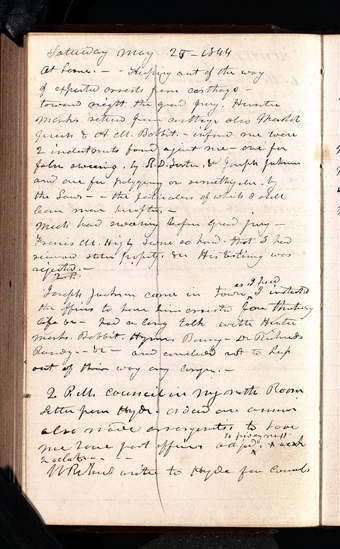 Saturday May 25 - 1844
At home. - - Keeping out of the way
of expected arrests from carthage -
toward night the grand jury. Hunter
Marks returd from carthage also Marshal
Greene & A M. Babbit. - informd me there were
2 indictments found agent me - one for
false swearing. by R. D. Foster. & Joseph Jackson
and one for polygamy or something else. by
the Laws - - the particulars of which I shall
learn more hereafter. -
Much hard swearing before grand jury -
Francis M. Higby swore so hard. that I had
His testimony was
rejected. -
2 P.
Joseph Jackson came in town, as I heard I instructed
the officers to have him arrested for threatening
life &c - had a long talk with Hunter
Marks. Babbit. Hyrum Dr Richards
&c - and concluded not to keep
out of their way any longer. -
2 P.M. council in my north Room
letter from Hyde. an answer
also made to
me
2 oclock - -
W Richards write to Hyde for council